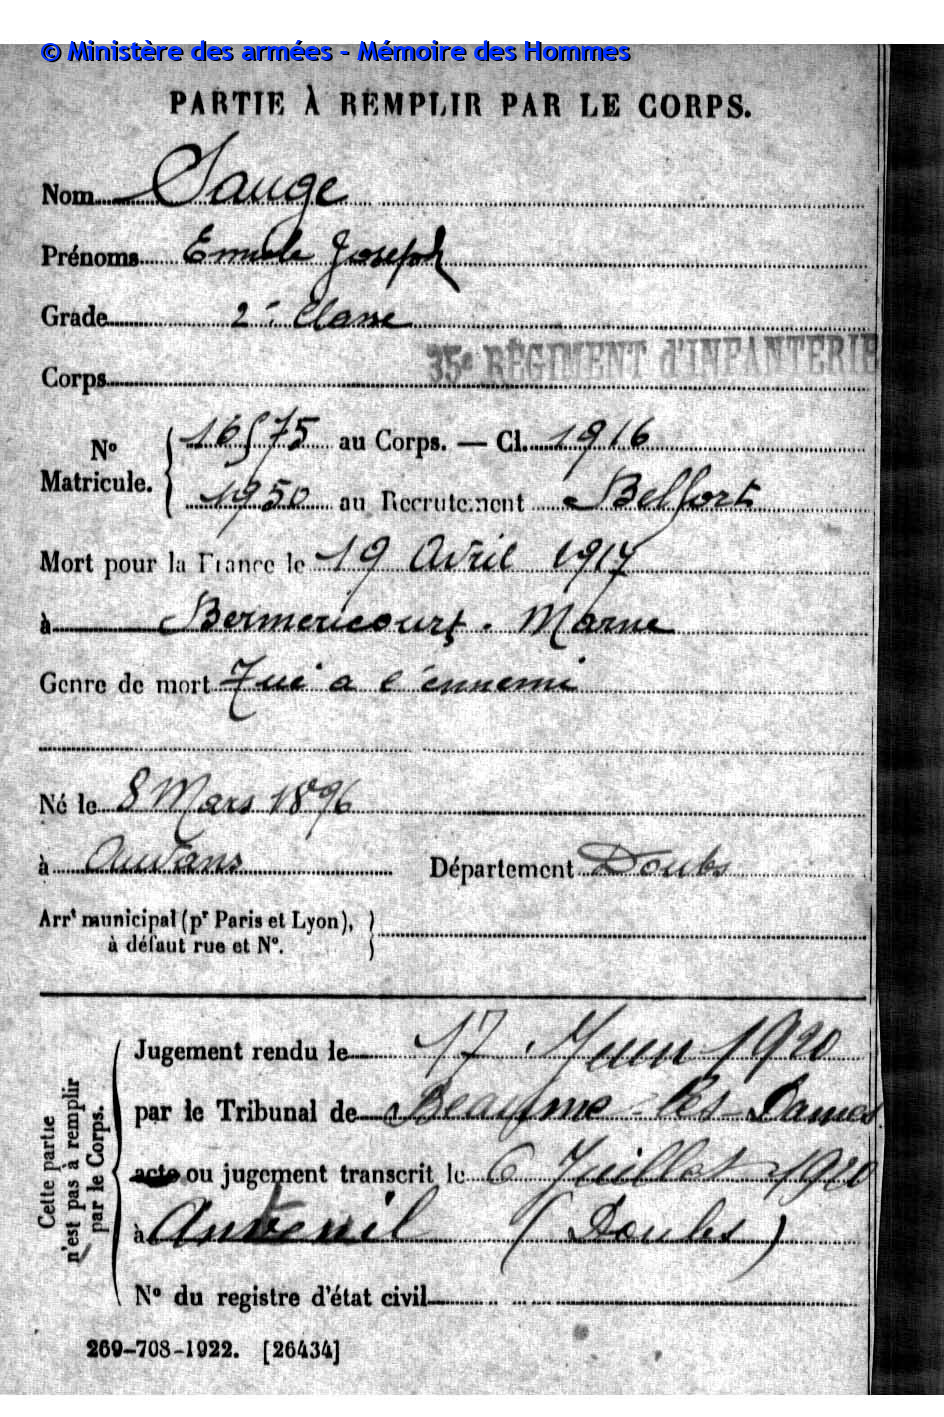 © Ministère des armées - Mémoire des Hommes
PARTIE À REMPLIR PAR LE CORPS.
Nom Sauge
Prénoms Emile Joseph
Grade 2e Classe
35e RÉGIMENT d'INFANTERIE
Corps
No Matricule. { 16575 au Corps. — Cl. 1916
1950 au Recrutement Belfort
Mort pour la France le 19 Avril 1917
à Bermericourt. Marne
Genre de mort Tué a l'énnemi
Né le 8 Mars 1896
à Département Doubs
Arrt municipal (pr Paris et Lyon), }
à défaut rue et No.
Cette partie
n'est pas à remplir
par le Corps.
Jugement rendu le 17 Juin 1920
par le Tribunal de Beaume-les-Dames
acte ou jugement transcrit le 6 Juillet 1920
à Anteuil (Doubs)
No du registre d'état civil
269-708-1922. [26434]